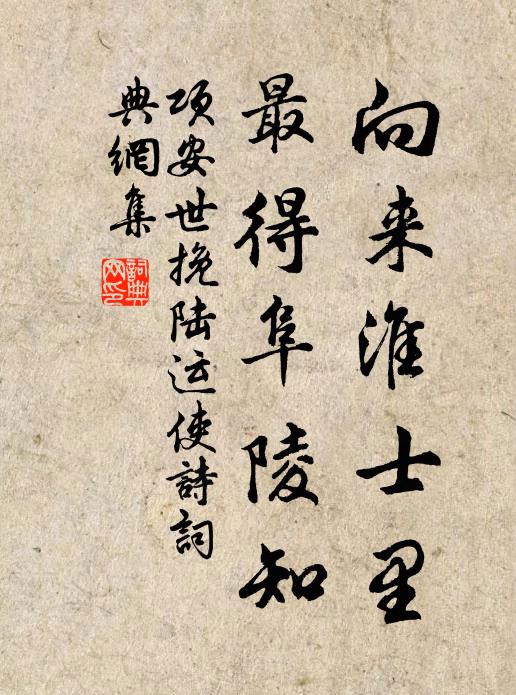 向来淮士里
最得阜陵知
项安世挽陆运使詩詞
典網集
詞典
网印